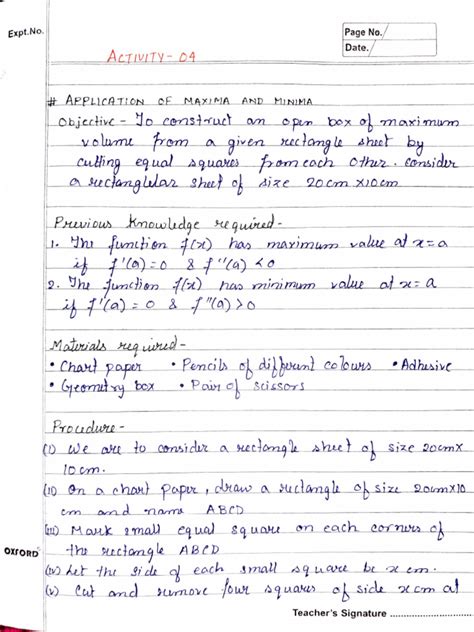 Expt.No.
Page No.
Date.
ACTIVITY - 04
# APPLICATION OF MAXIMA AND MINIMA
Objective - To construct an open box of maximum
volume from a given rectangle sheet by
cutting equal squares from each other. consider
a rectanglelar sheet of size 20cm X10cm
Previous Knowledge required -
1. The function f(x) has maximum value at x=a
if f'(a)=0 & f''(a) <0
2. The function f(x) has minimum value at x=a
if f'(a) = 0 & f''(a)>0
Materials required -
• Chart paper • Pencils of different colours • Adhesive
• Geometry box • Pair of scissors
Procedure -
(i) We are to consider a rectangle sheet of size 20cmX
10cm.
(ii) On a chart paper, draw a rectangle of size 20cmX10
cm and name ABCD
(iii) Mark small equal square on each corners of
the rectangle ABCD
OXFORD
(iv) Let the side of each small square be x cm.
(v) Cut and remove four squares of side x cm at
Teacher's Signature